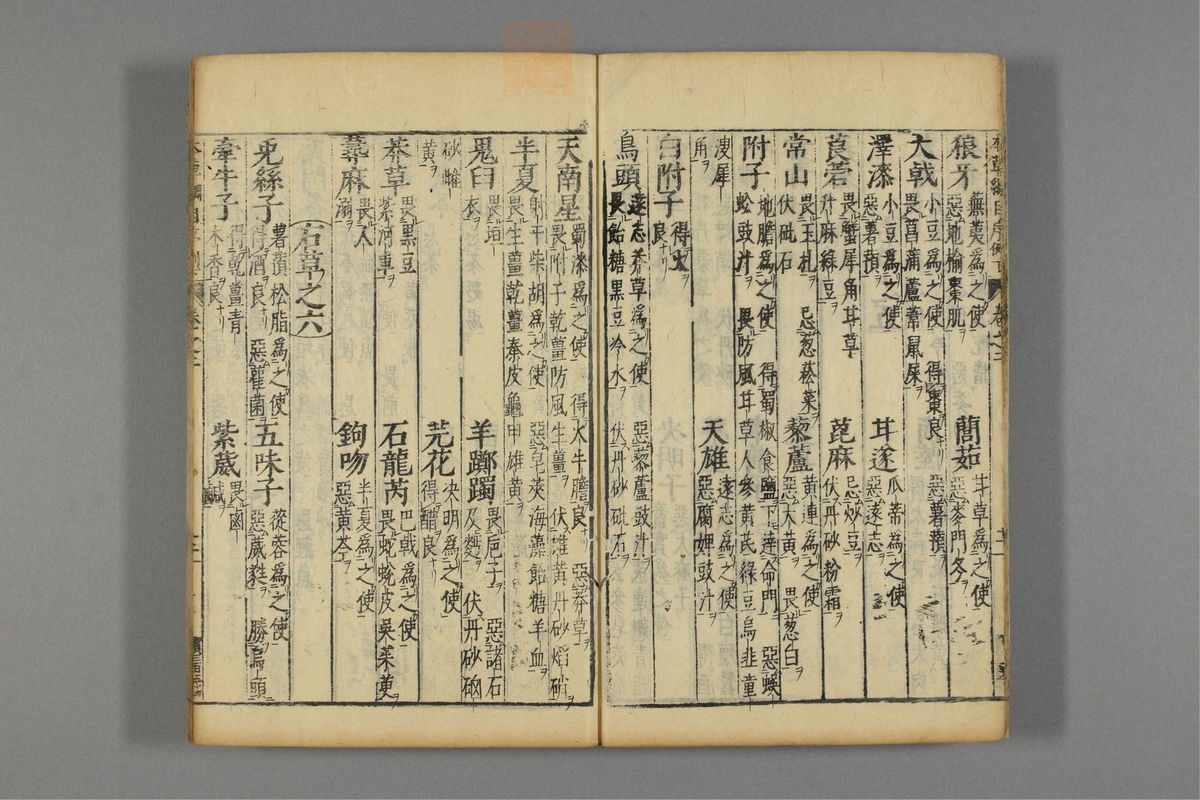 狼牙 蕪荑爲之使 惡地榆棗肌 藺茹 甘草爲之使 惡麥門冬
大戟 小豆爲之使 得棗良 畏菖蒲蘆葦鼠屎 惡薯蕷
澤漆 小豆爲之使 惡薯蕷 甘遂 瓜蒂爲之使 惡遂志
莨菪 畏蟹犀角甘草升麻綠豆 蓖麻 忌炒豆 伏丹砂粉霜
常山 畏玉札 忌葱菘菜 伏砒石 藜蘆 黃連爲之使 惡大黃 畏葱白
附子 地膽爲之使 得蜀椒食鹽下達命門 惡蜈蚣豉汁 畏防風甘草人參黃芪綠豆烏韭童
溲犀角 天雄 遂志爲之使 惡腐婢豉汁
白附子 得火良
烏頭 遂志莽草爲之使 惡藜蘆豉汁 畏飴糖黑豆冷水 伏丹砂砒石
天南星 蜀漆爲之使 得火牛膽良 惡莽草 畏附子乾薑防風生薑 伏雄黃丹砂焰硝
半夏 射干柴胡爲之使 惡皂莢海藻飴糖羊血 畏生薑乾薑秦皮龜甲雄黃
鬼臼 畏垣衣 羊躑躅 畏巵子 惡諸石及麪 伏丹砂硇
砂雌黃 芫花 決明爲之使 得醋良
莽草 畏黑豆紫河車 石龍芮 巴戟爲之使 畏蛇蛻皮吳茱萸
蕁麻 畏人溺 鉤吻 半夏爲之使 惡黃芩
右草之六
兎絲子 薯蕷松脂爲之使 得酒良 惡雚菌 五味子 蓯蓉爲之使 惡葳蕤 勝烏頭
牽牛子 得乾薑青木香良 紫葳 畏鹵鹹